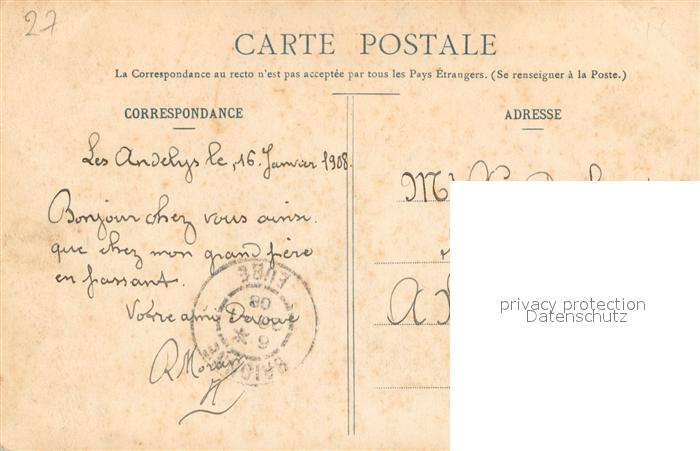 27
CARTE POSTALE
La Correspondance au recto n'est pas acceptée par tous les Pays Étrangers. (Se renseigner à la Poste.)
CORRESPONDANCE
ADRESSE
Les Andelys le, 16. Janvier 1908.
Bonjour chez vous ainsi.
que chez mon grand frère
en passant.
Votre ami Dévoué
R Moran
EURE
08
6
Mr
A
privacy protection
Datenschutz